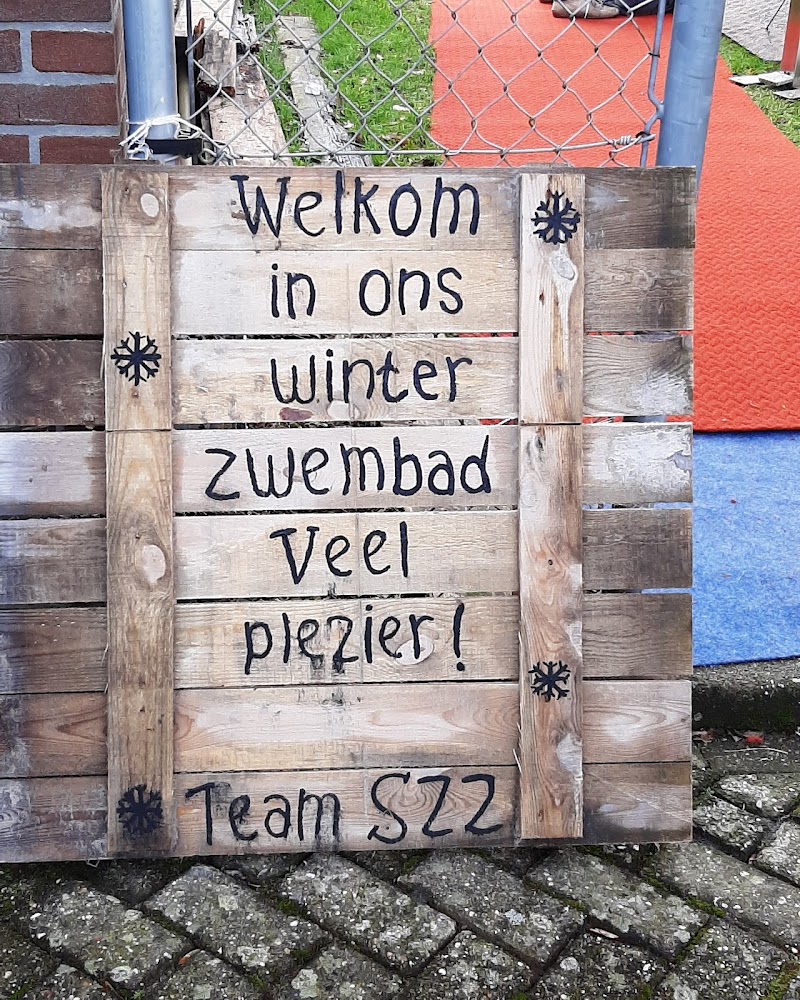 Welkom
in ons
winter
zwembad
Veel
plezier!
Team SZZ